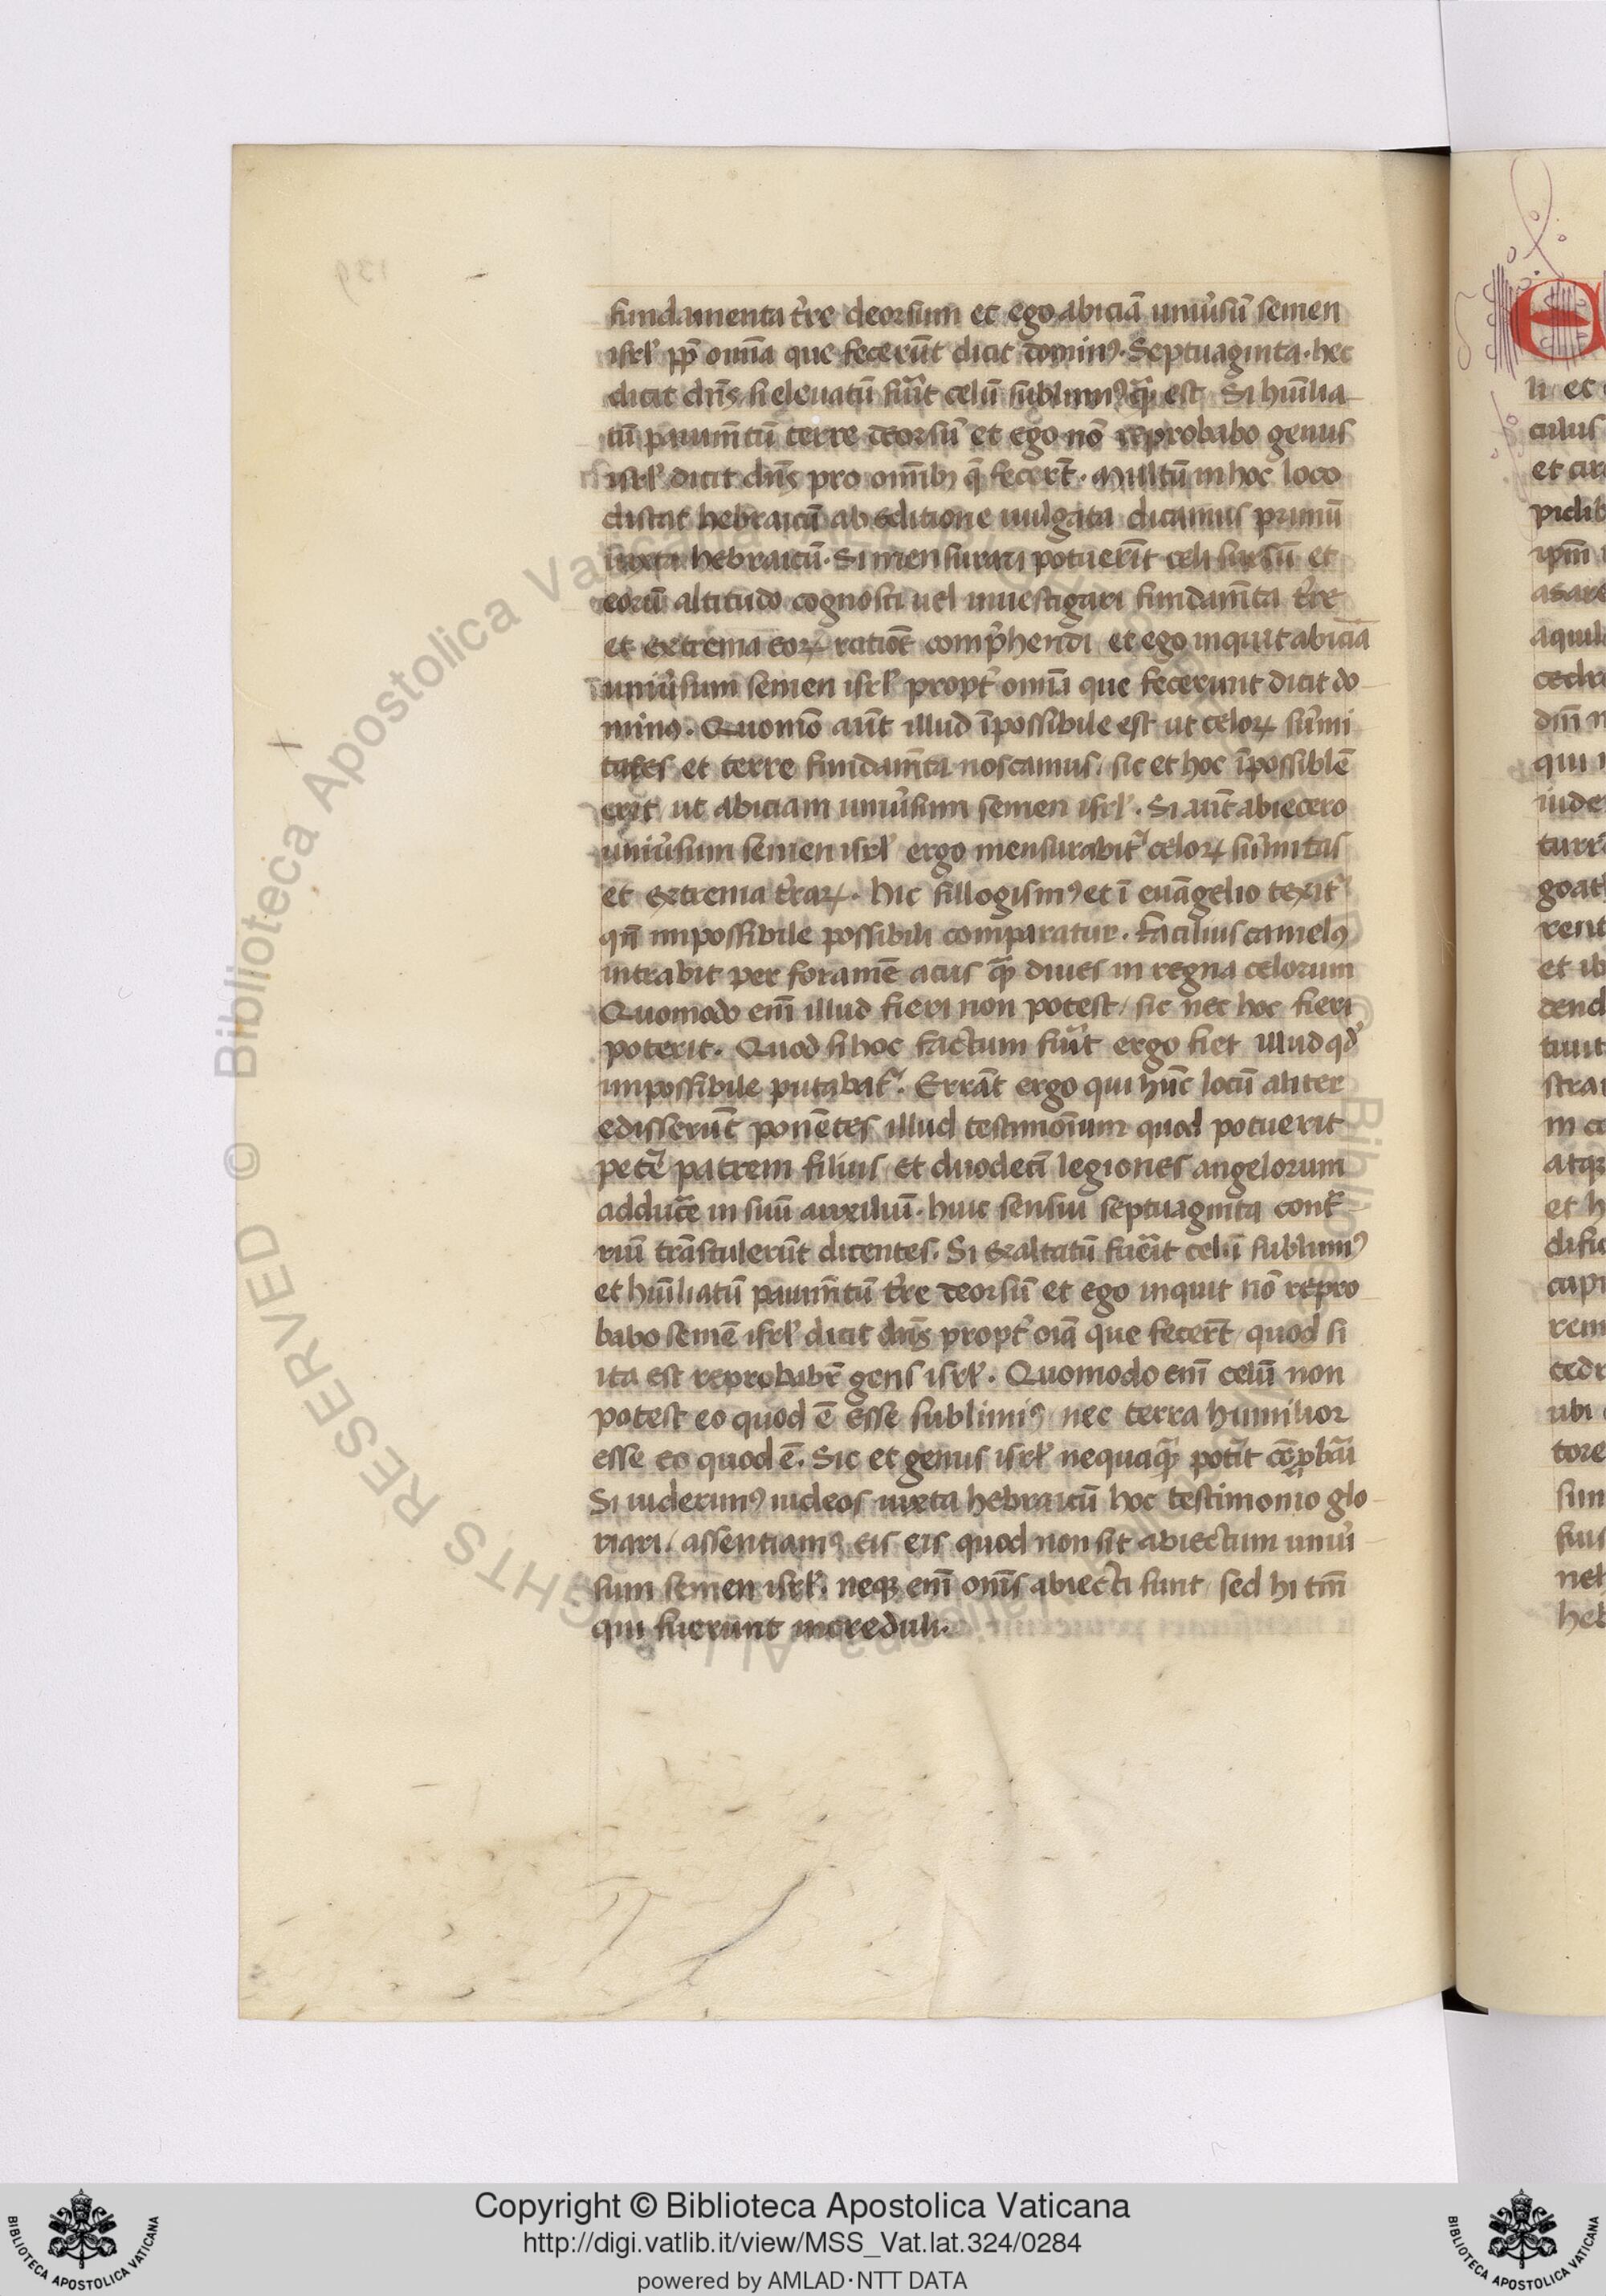 fundamenta t̉re deorsum et ego abiciã uniũsũ semen
isrl' pp̃ omĩa que fecerũt dicit dominꝰ. Septuaginta. hec
dicit dñs si eleuatũ fũit celũ sublimiꝰ q̃ꝫ est Si humĩlia
tũ pauimẽtũ terre deorsũ et ego nõ reprobabo genus
isrl' dicit dñs pro omĩbꝫ q̃ fecert̃. Multũ in hoc loco
distat hebraicũ ab editione uulgata dicamus primũ
iuxta hebraicũ. Si mensurari potuerĩt celi sursũ et
eorũ altitudo cognosci uel inuestigari fundamẽta t̉re
et extrema eoꝝ ratioẽ comp̉hendi et ego inquit abiciã
uniũsum semen isrl' propt̉ omĩa que fecerunt dicit do
minꝰ. Quomõ aũt illud ĩpossibile est ut celoꝝ sũmi
tates et terre fundamẽta noscamus. sic et hoc ĩpossiblẽ
erit ut abiciam uniũsum semen isrl'. Si aũt abiecero
uniũsum semen isrl' ergo mensurabit̉ celoꝝ sũmitas
et extrema t̉raꝝ. Hic sillogismꝰ et ĩ euãgelio texit̉
qñ impossibile possibili comparatur. Facilius camelꝰ
intrabit per foramẽ acus q̃ꝫ diues in regna celorum
Quomodo em̃ illud fieri non potest / sic nec hoc fieri
poterit. Quod si hoc factum fũit ergo fiet illud qđ
impossibile putabat̉. Errãt ergo qui hũc locũ aliter
edisserũt ponẽtes illud testimoniũm quod potuerit
petẽ patrem filius et duodecĩ legiones angelorum
adducẽ in suũ auxiliũ. huic sensui septuaginta cont̃
riũ trãstulerũt dicentes. Si exaltatũ fuẽit celũ sublimiꝰ
et humĩliatũ pauimẽtũ t̉re deorsũ et ego inquit nõ repro
babo semẽ isrl' dicit dñs propt̉ oĩa que fecert̃ / quod si
ita est reprobabit̃ gens isrl'. Quomodo em̃ celũ non
potest eo quod ẽ esse sublimiꝰ nec terra humilior
esse eo quod ẽ. Sic et genus isrl' nequaq̃ꝫ potĩt
Si uiderimꝰ iudeos iuxta hebraicũ hoc testimonio glo
riari / assentiamꝰ eis eis quod non sit abiectum uniũ
sum semen isrl'. neqꝫ em̃ om̃s abiecti sunt / sed hi tm̃
qui fuerunt increduli.
Copyright © Biblioteca Apostolica Vaticana
http://digi.vatlib.it/view/MSS_Vat.lat.324/0284
powered by AMLAD·NTT DATA